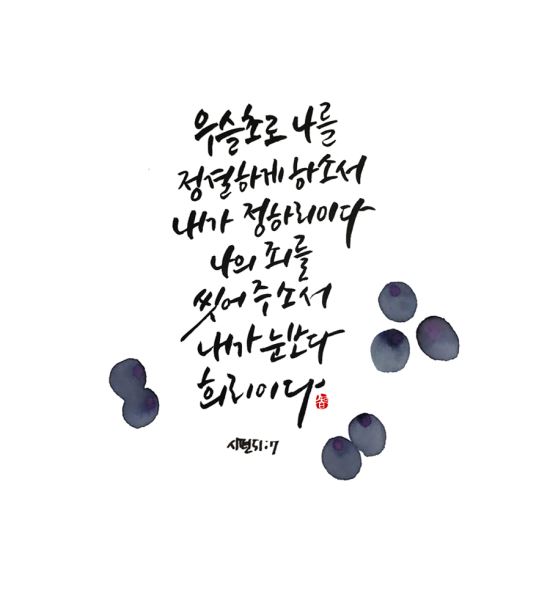 우슬초로 나를
정결하게 하소서
내가 정하리이다
나의 죄를
씻어 주소서
내가 눈보다
희리이다
시편 51:7